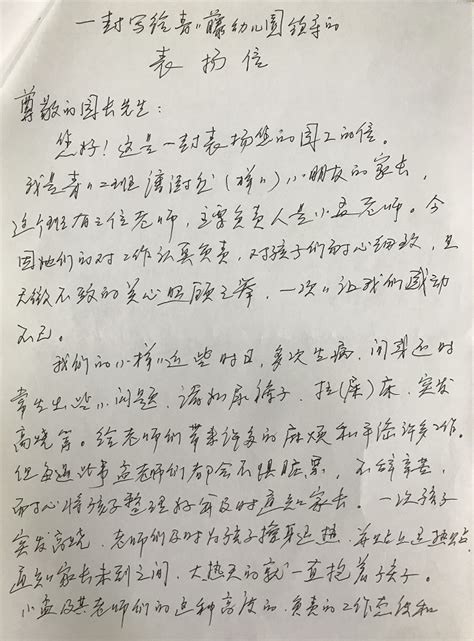 一封写给青藤幼儿园领导的
表扬信
尊敬的园长先生：
您好！这是一封表扬您的园工的信。
我是青二班 （样样）小朋友的家长，
这个班有三位老师，主要负责人是小孟老师。今
因她们的对工作认真负责，对孩子们耐心细致，且
无微不致的关心照顾之举，一次次让我们感动
不已。
我们的小样近些时日，多次生病，闹肚 时
常生出些小问题，诸如尿裤子、拉（尿）床、突发
高烧等。给老师们带来许多的麻烦和平添许多工作。
但每遇此事孟老师们都会不惧脏累，不辞辛苦，
耐心将孩子整理好并及时通知家长。一次孩子
突发高烧，老师们及时为孩子擦身退热，并
通知家长未到之间，大热天的就一直抱着孩子。
小孟及其老师们的这种高度的、负责的工作态度和